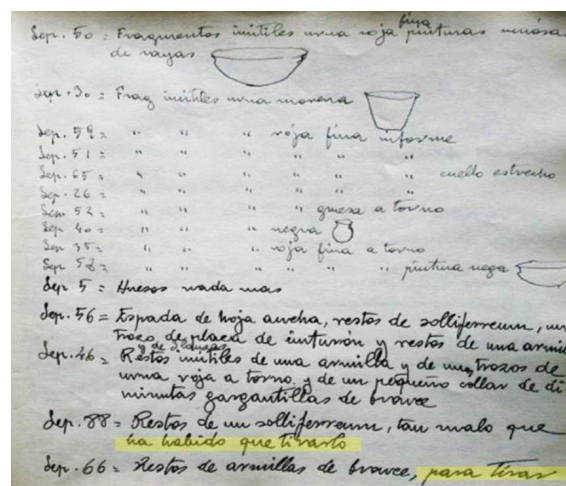 Sep. 50 : Fragmentos inútiles urna roja fina pinturas
de rayas
Sep. 30 = Frag inútiles urna morena
Sep. 59 = " " " roja fina informe
Sep. 51 = " " " " " "
Sep. 65 = " " " " " " cuello estrecho
Sep. 26 = " " " " " "
Sep. 52 = " " " gruesa a torno
Sep. 40 = " " " negra
Sep. 35 = " " " roja fina a torno
Sep. 58 = " " " " " " pintura nega
Sep 5 = Huesos nada mas
Sep. 56 = Espada de hoja ancha, restos de solliferreum, un
trozo de placa de cinturón y restos de una armil
Sep. 46 = Restos inútiles de una armilla y de un, trozos de
urna roja a torno y de un pequeño collar de di
minutas gargantillas de bronce
Sep. 88 = Restos de un solliferreum, tan malo que
ha habido que tirarlo
Sep. 66 = Restos de armillas de bronce, para tirar